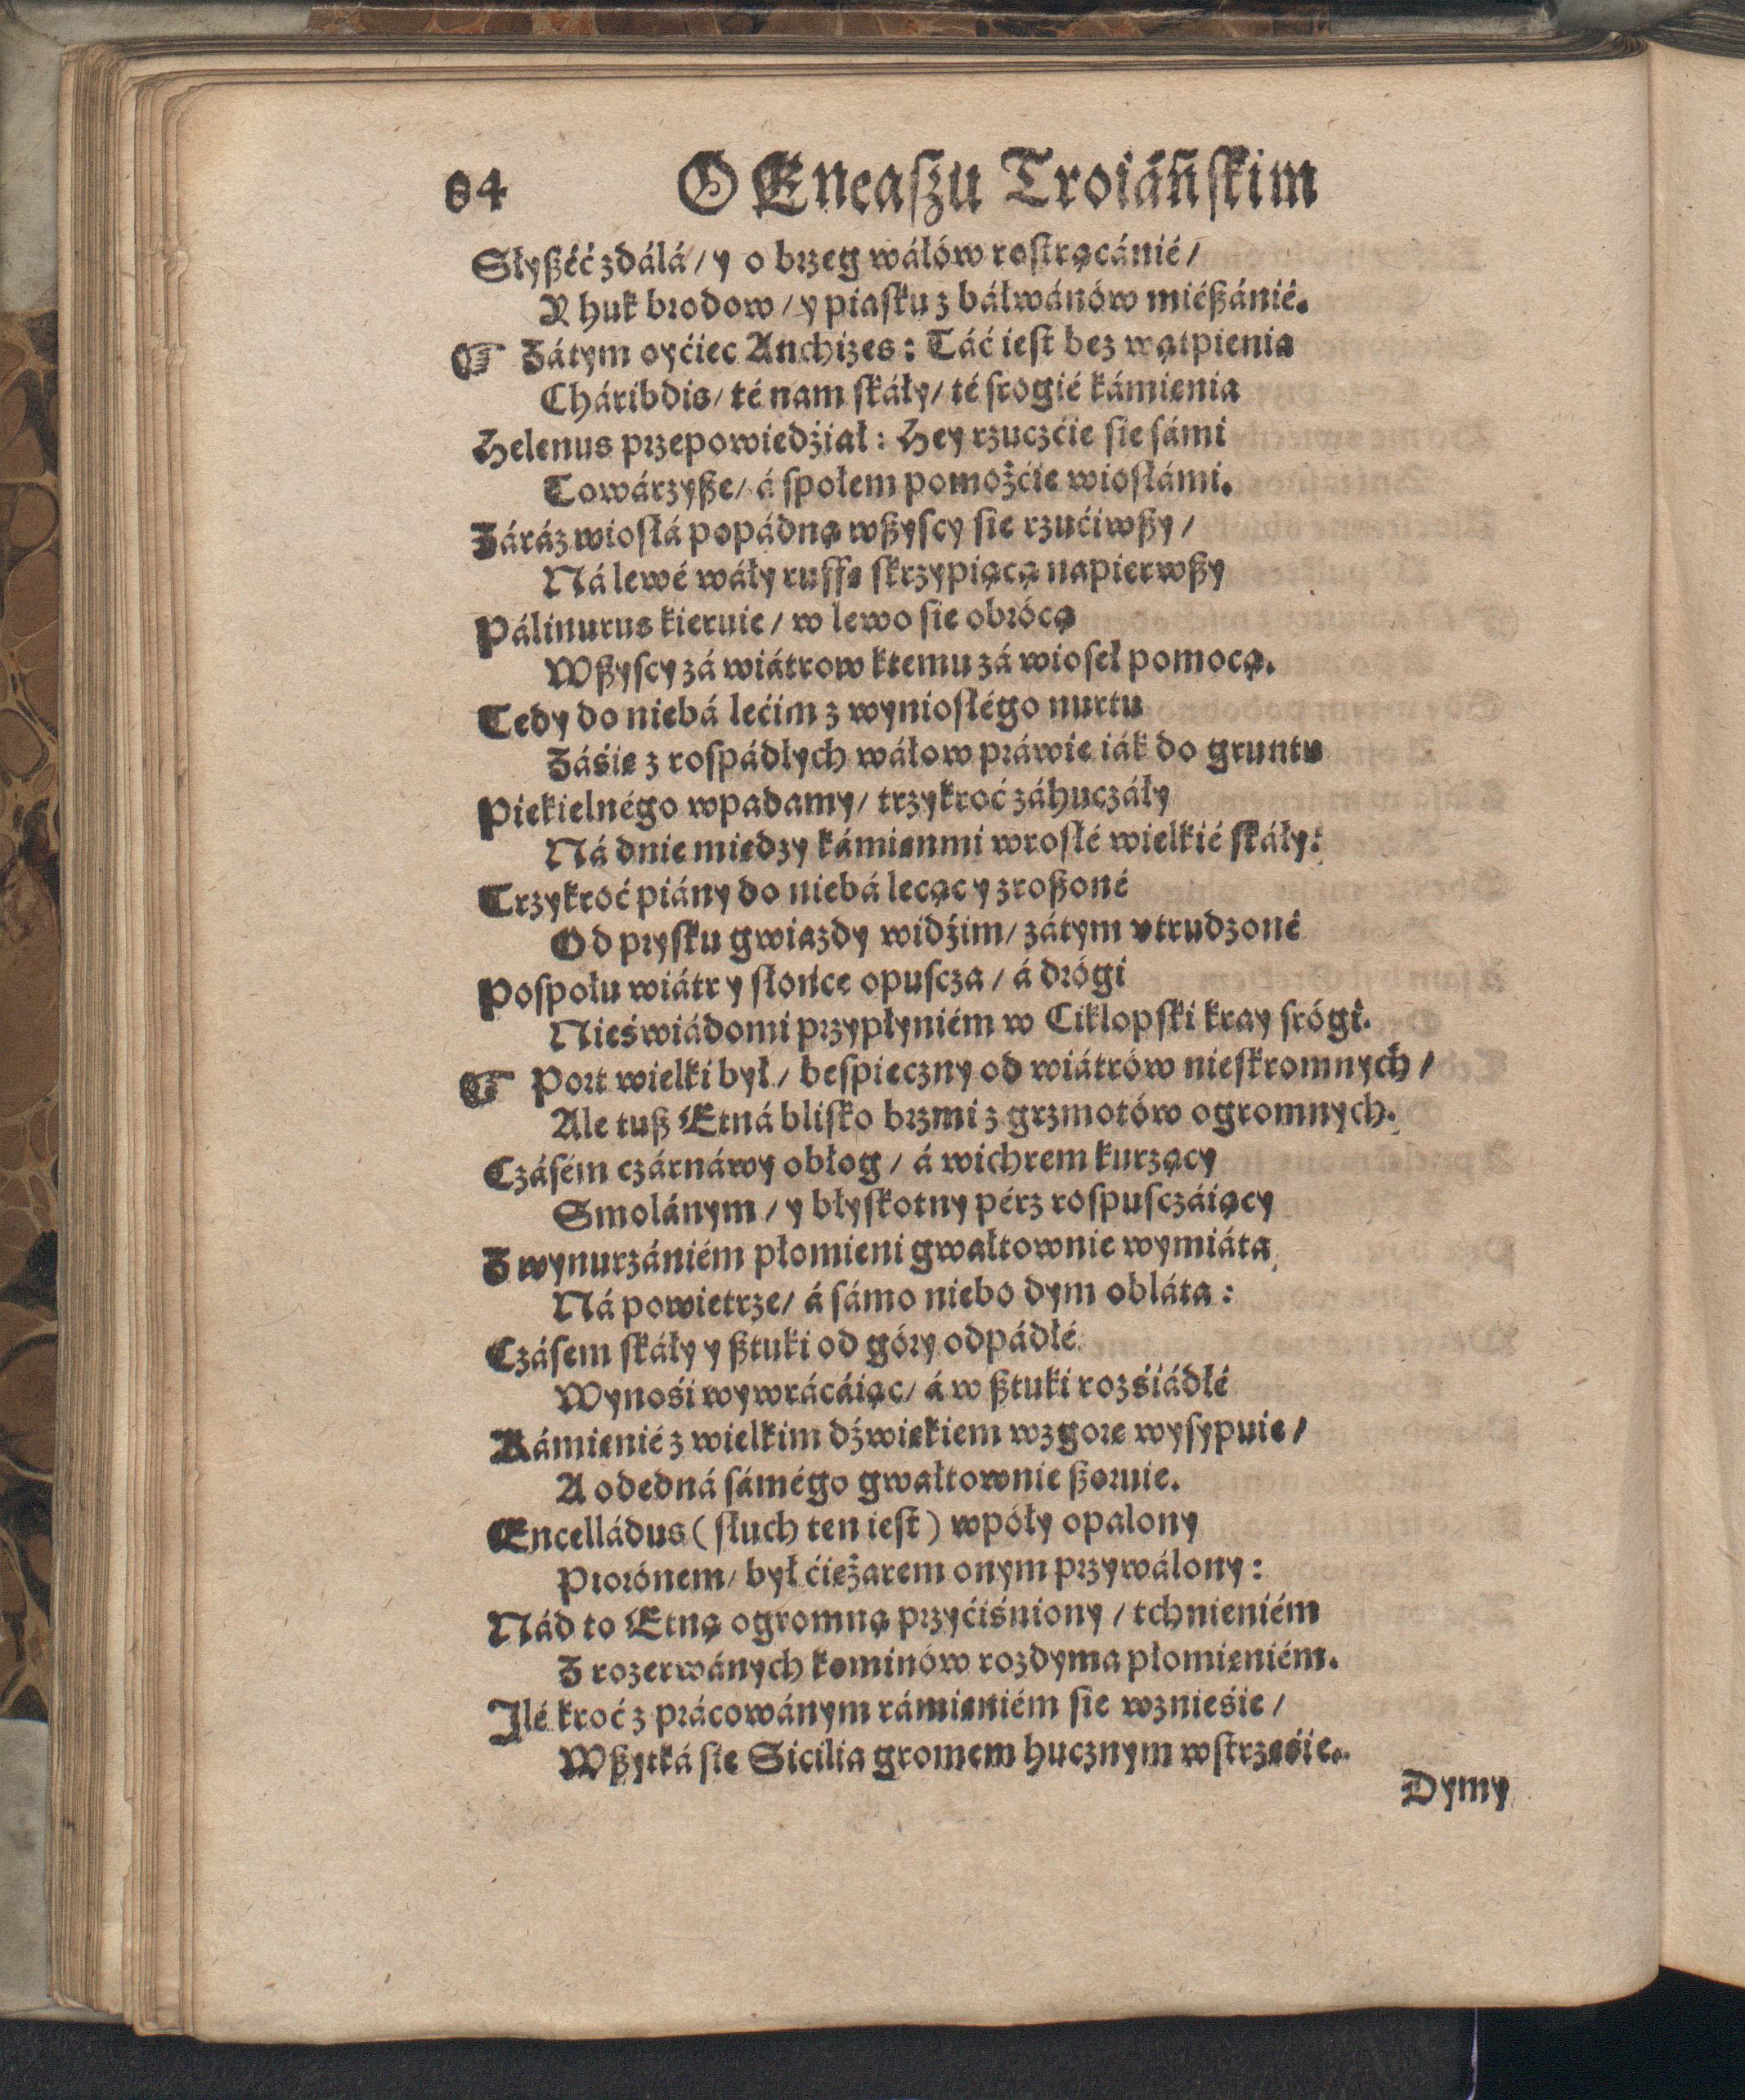 84 O Eneaſzu Troiáńſkim
Słyßéć zdálá / y o brzeg wáłów roſtrącánié /
Y huk brodow / y piaſku z báłwánów miéßánié.
☞ Zátym oyćiec Anchizes : Táć ieſt bez wątpienia
Cháribdis / té nam ſkáły / té ſrogié kámienia
Helenus przepowiedźiał : Hey rzuczćie ſie ſámi
Towárzyße / á ſpołem pomożćie wioſłámi.
Záráz wioſłá popádną wßyſcy ſie rzućiwßy /
Ná lewé wáły ruffę ſkrzypiącą napierwßy
Pálinurus kieruie / w lewo ſie obrócą
Wßyſcy zá wiátrow ktemu zá wioſeł pomocą.
Tedy do niebá lećim z wynioſłégo nurtu
Záśie z roſpádłych wáłow práwie iák do gruntu
Piekielnégo wpadamy / trzykroć záhuczáły
Ná dnie miedzy kámienmi wroſłé wielkié ſkáły :
Trzykroć piány do niebá lecący zroßoné
Od pryſku gwiazdy widźim / zátym vtrudzoné
Poſpołu wiátr y słońce opuſcza / á drógi
Nieświádomi przypłyniém w Ciklopſki kray ſrógi.
☞ Port wielki był / beſpieczny od wiátrów nieſkromnych /
Ale tuß Etná bliſko brzmi z grzmotów ogromnych.
Czáſém czárnáwy obłog / á wichrem kurzący
Smolánym / y błyſkotny pérz roſpuſczáiący
Z wynurzániém płomieni gwałtownie wymiáta
Ná powietrze / á ſámo niebo dym obláta :
Czáſem ſkáły y ßtuki od góry odpádłé
Wynośi wywrácáiąc / á w ßtuki rozśiádłé
Kámienié z wielkim dźwiękiem wzgore wyſypuie /
A odedná ſámégo gwałtownie ßoruie.
Encelládus ( słuch ten ieſt ) wpóły opalony
Piorónem / był ćiężarem onym przywálony :
Nád to Etną ogromną przyćiśniony / tchnieniém
Z rozerwánych kominów rozdyma płomieniém.
Jlé kroć z prácowánym rámieniém ſie wznieśie /
Wßytká ſie Sicilia gromem hucznym wſtrzęśie.
Dymy